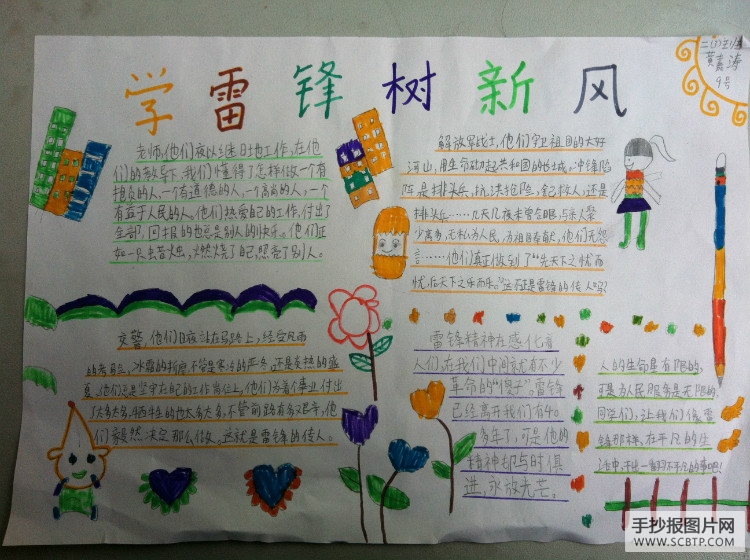 学雷锋树新风
二(3)班
黄鑫涛
9号
老师,他们夜以继日地工作,在他
们的教导下,我们懂得了怎样做一个有
抱负的人,一个有道德的人,一个高尚的人,一个
有益于人民的人。他们热爱自己的工作,付出了
全部,回报的也总是别人的快乐。他们正
如一只蜡烛,燃烧了自己,照亮了别人。
解放军战士,他们守卫祖国的大好
河山,用生命砌起共和国的长城。冲锋陷
阵是排头兵,抗洪抢险,舍己救人,还是
排头兵……几天几夜未曾合眼,与亲人聚
少离多,无私为人民,为祖国奉献,他们无怨
言……他们真正做到了“先天下之忧而
忧,后天下之乐而乐。”这不正是雷锋的传人吗?
交警,他们日夜站在马路上,经受风雨
的考验,冰霜的折磨,不管是寒冷的严冬,还是炎热的盛
夏,他们总是坚守在自己的工作岗位上,他们为着事业,付出
了太多太多,牺牲的也太多太多,不管前路有多艰辛,他
们毅然决定那么做。这就是雷锋的传人。
雷锋精神在感化着
人们,在我们中间就有不少
革命的“傻子”。雷锋
已经离开我们有40
多年了,可是他的
精神却与时俱
进,永放光芒。
人的生命是有限的,
可是为人民服务是无限的,
同学们,让我们像雷
锋那样,在平凡的生
活中,干出一番不平凡的事吧!
手抄报图片网
WWW.SCBTP.COM